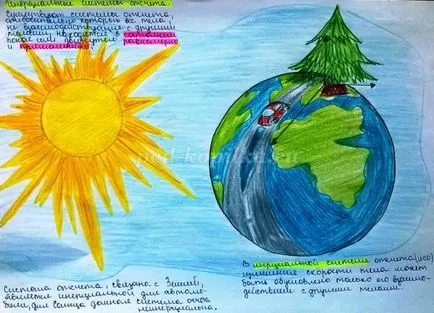 Инерциальные системы отсчёта.
Существуют системы отсчёта,
относительно которых все тела,
не взаимодействующие с другими
телами, находятся в состоянии
покоя или движутся равномерно
и прямолинейно.
ped-kopilka.ru
Система отсчёта, связано с Землёй,
является инерциальной для автомо-
биля, для Солнца данная система отсчёта
неинерциальна.
В инерциальной системе отсчёта (ИСО)
изменение скорости тела может
быть обусловлено только его взаимо-
действием с другими телами.